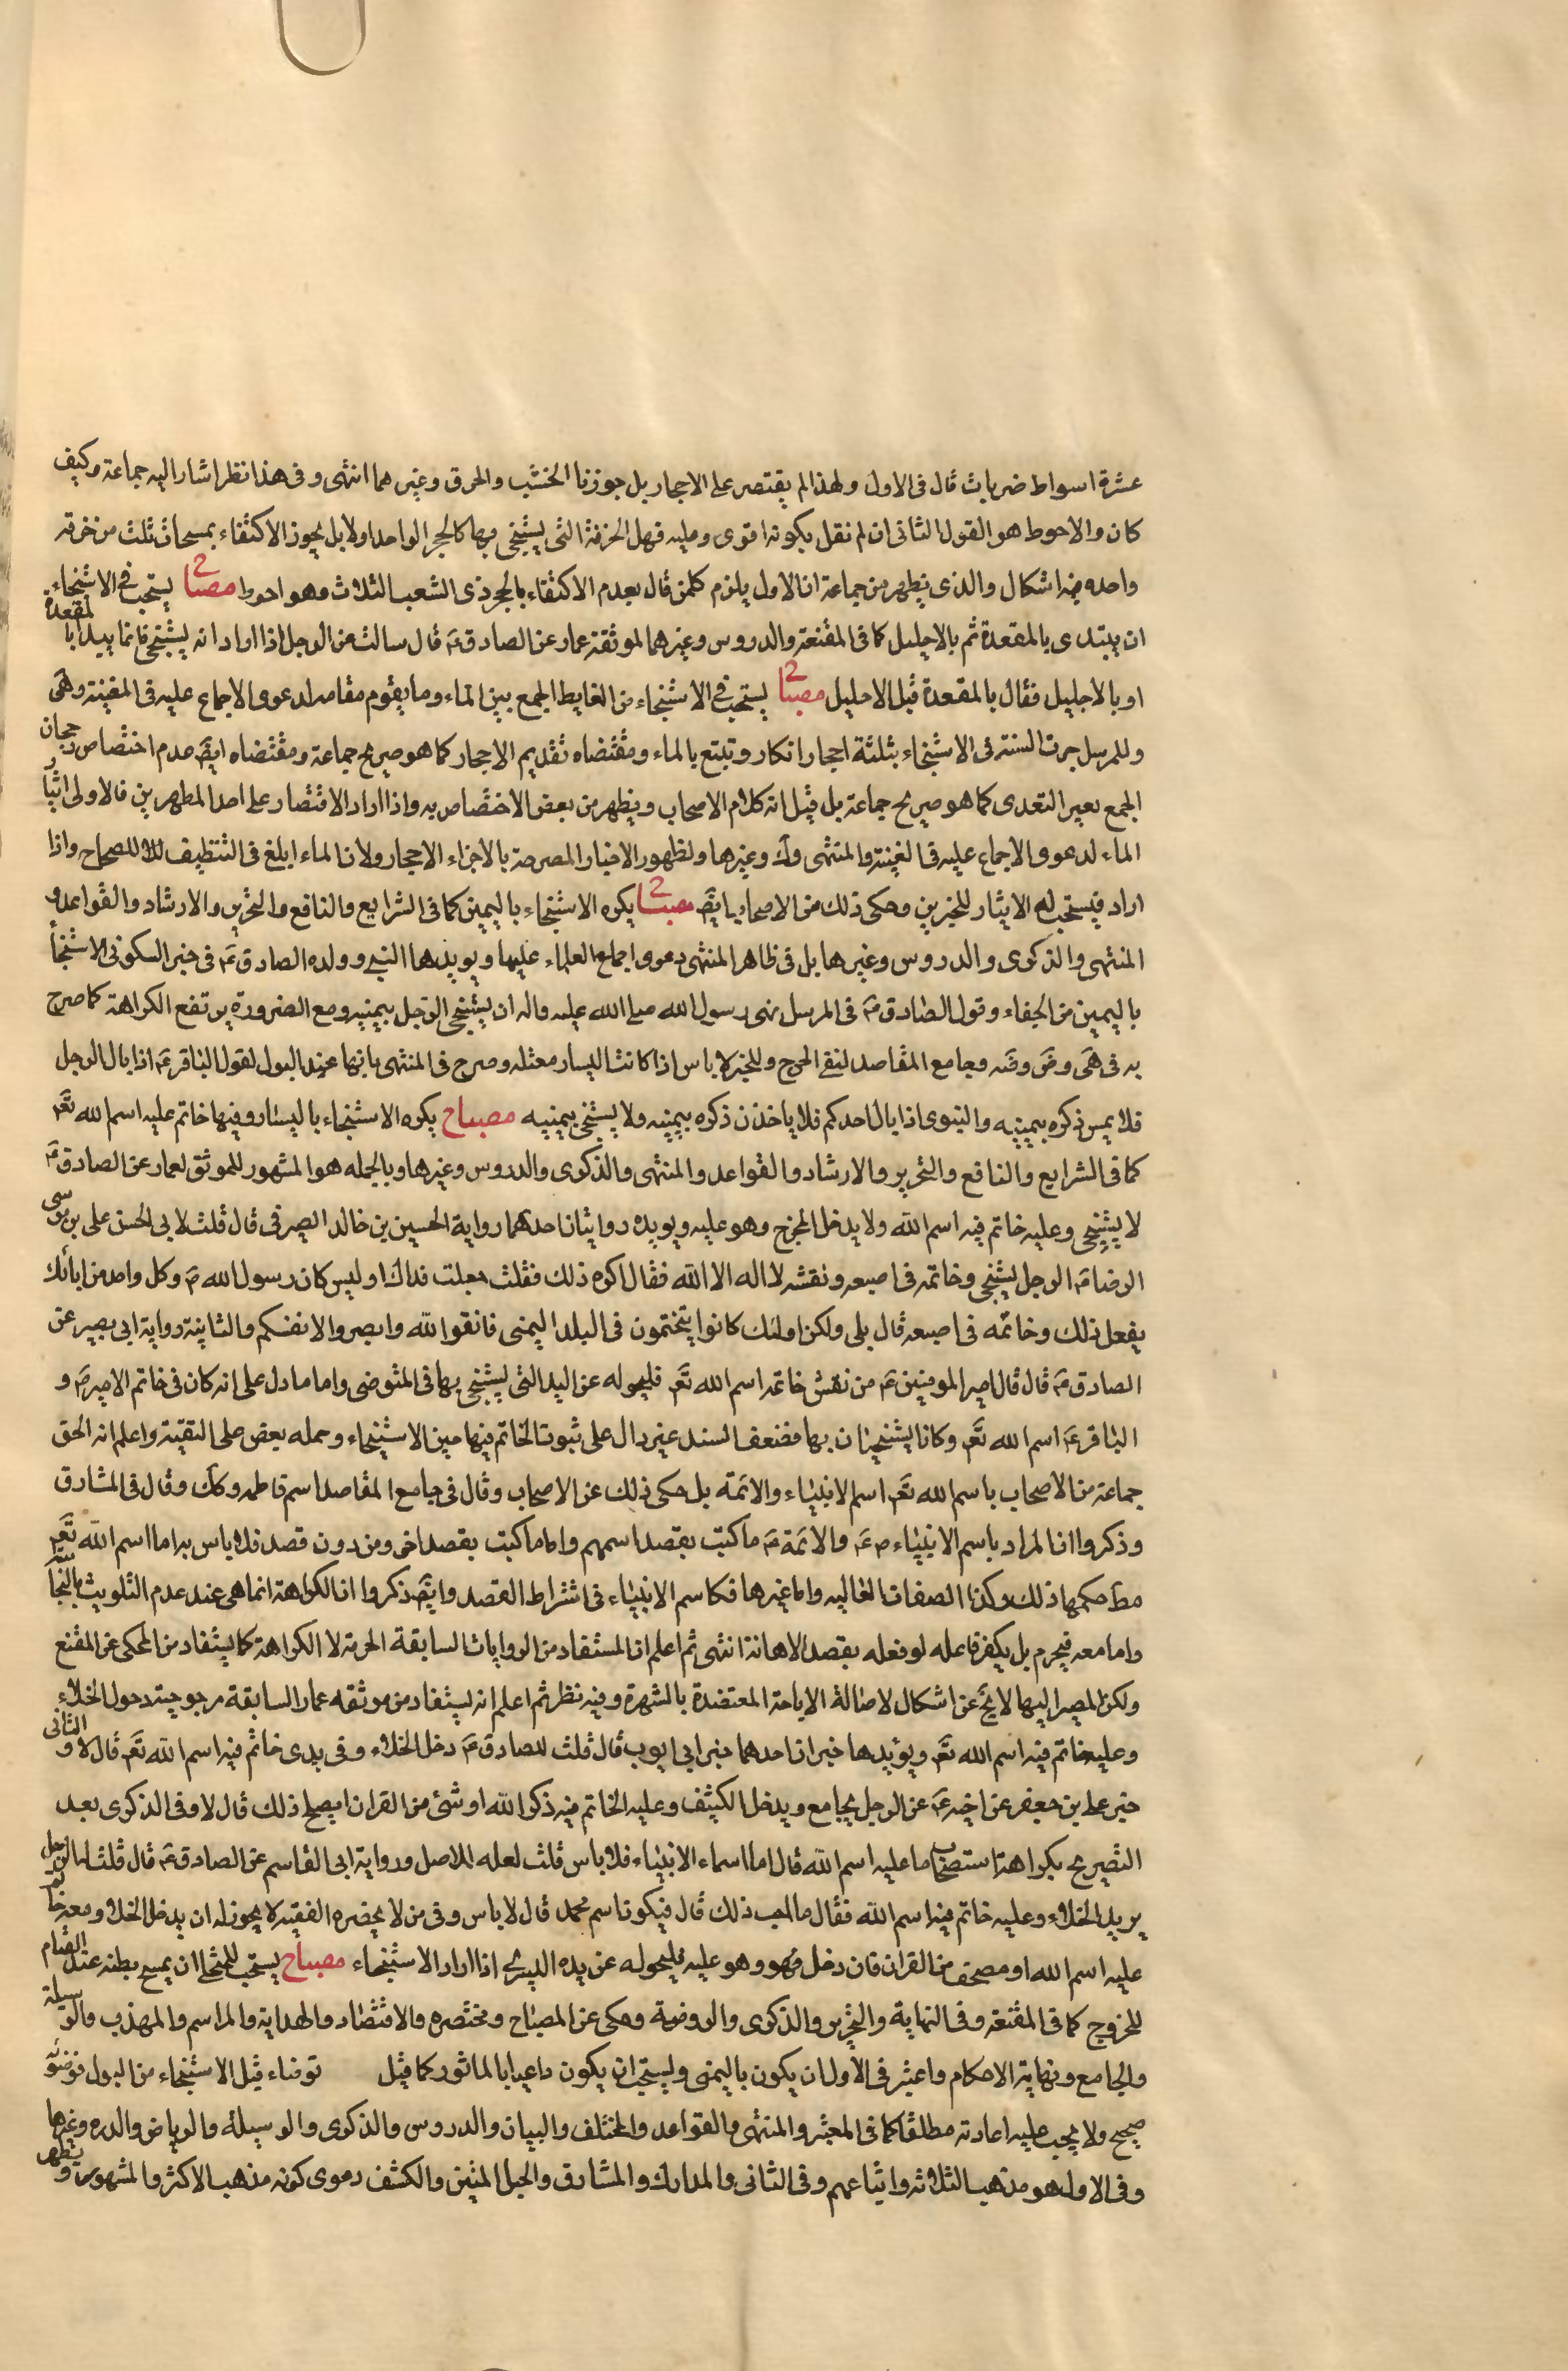 عشرة اسواط ضربات قال فى الاول ولهذا لم يقتصر على الاحجار بل جوزنا الخشب والخرق وغيرهما انتهى وفى هذا نظر اشار اليه جماعة وكيف
كان والاحوط هو القول الثانى ان لم نقل بكونه اقوى وعليه فهل الخرقة التى يستنجى بها كالحجر الواحد اولا بل يجوز الاكتفاء بمسحات ثلث من خرقة
واحده فيه اشكال والذى يظهر من جماعة ان الاول يلزم كلمن قال بعدم الاكتفاء بالحجر ذى الشعب الثلاث وهو احوط مصباح يستحب فى الاستنجاء
ان يبتدى بالمقعدة ثم بالاحليل كما فى المقنعة والدروس وغيرهما لموثقة عمار عن الصادق ع قال سالته عن الرجل اذا اراد انه يستنجى فانما يبدا بالمقعدة
او بالاحليل فقال بالمقعدة قبل الاحليل مصباح يستحب فى الاستنجاء من الغايط الجمع بين الماء وما يقوم مقامه لدعوى الاجماع عليه فى المغنية وهى
وللمرسل جرت السنة فى الاستنجاء بثلثة احجار ابكار وتتبع بالماء ومقتضاه تقديم الاحجار كما هو صريح جماعة ومقتضاه ايض عدم اختصاص رجحان
الجمع بغير التعدى كما هو صريح جماعة بل قيل انه كلام الاصحاب ويظهر من بعض الاختصاص به واذا اراد الاقتصار على احد المطهرين فالاولى اختيار
الماء لدعوى الاجماع عليه فى الغنية والمنتهى وك وغيرها ولظهور الاخبار المصرحة بالاجزاء الاحجار ولان الماء ابلغ فى التنظيف واذا
اراد فيستحب له الايثار للخبرين وحكى ذلك من الاصحاب ايض مصباح يكره الاستنجاء باليمين كما فى الشرايع والنافع والتحرير والارشاد والقواعد و
المنتهى والذكرى والدروس وغيرها بل فى ظاهر المنتهى دعوى اجماع العلماء عليها ويويدهما النبى وولده الصادق ع فى خبر السكونى الاستنجأ
باليمين من الجفاء وقول الصادق ع فى المرسل نهى رسول الله صلى الله عليه واله ان يستنجى الرجل بيمينه ومع الضرورة يرتفع الكراهة كما صرح
به فى هى وض وضه وجامع المقاصد لنفى الحرج وللخبر لا باس اذا كانت اليسار معتله وصرح فى المنتهى بانهما عند البول لقول الباقر ع اذا بال الرجل
فلا يمس ذكره بيمينه والنبوى اذا بال احدكم فلا ياخذن ذكره بيمينه ولا يستنجى بيمينه مصباح يكره الاستنجاء باليسار وفيها خاتم عليه اسم الله تع
كما فى الشرايع والنافع والتحرير والارشاد والقواعد والمنتهى والذكرى والدروس وغيرها وبالجمله هو المشهور للموثق لعمار عن الصادق ع
لا يستنجى وعليه خاتم فيه اسم الله ولا يدخل المخرج وهو عليه ويويده روايتان احدهما رواية الحسين بن خالد الصيرفى قال قلت لابى الحسن على بن موسى
الرضا ع الرجل يستنجى وخاتمه فى اصبعه ونقشه لا اله الا الله فقال اكره ذلك فقلت جعلت فداك اوليس كان رسول الله ص وكل واحد من ابائك
يفعل ذلك وخاتمه فى اصبعه قال بلى ولكن اولئك كانوا يتختمون فى اليد اليمنى فاتقوا الله وابصروا لانفسكم والثانية رواية ابى بصير عن
الصادق ع قال قال امير المومنين ع من نقش خاتمه اسم الله تع فليحوله عن اليد التى يستنجى بها فى المتوضى واما ما دل على انه كان فى خاتم الامير ع و
الباقر ع اسم الله تع وكانا يستنجيان بها فضعف السند غير دال على ثبوت الخاتم فيها حين الاستنجاء وحمله بعض على التقية واعلم انه الحق
جماعة من الاصحاب باسم الله تع اسم الانبياء والائمة بل حكى ذلك عن الاصحاب وقال فى جامع المقاصد اسم فاطمه وكك وقال فى المشارق
وذكروا ان المراد باسم الانبياء ع والائمة ع ما كتب بقصد اسمهم واما ما كتب بقصد اخر ومن دون قصد فلا باس به اما اسم الله تع
مط حكمها ذلك وكذا الصفات الغاليه واما غيرها فكاسم الانبياء فى اشتراط القصد وايض ذكروا ان الكراهة انما هى عند عدم التلويث بالنجاسة
واما معه فيحرم بل يكفر فاعله لو فعله بقصد الاهانة انتهى ثم اعلم ان المستفاد من الروايات السابقة الحرمة لا الكراهة كما يستفاد من المحكى عن المقنع
ولكن المصير اليها لا يخ عن اشكال لاصالة الاباحة المعتضدة بالشهرة وفيه نظر ثم اعلم انه يستفاد من موثقه عمار السابقة مرجوحية دخول الخلاء
وعليه خاتم فيه اسم الله تع ويؤيدها خبران احدهما خبر ابى ايوب قال قلت للصادق ع دخل الخلاء وفى يدى خاتم فيه اسم الله تع قال لا والثانى
خبر على بن جعفر عن اخيه ع عن الرجل يجامع ويدخل الكنيف وعليه الخاتم فيه ذكر الله او شئ من القران ايصلح ذلك قال لا وفى الذكرى بعد
التصريح بكراهة استصحاب ما عليه اسم الله قال اما اسماء الانبياء فلا باس قلت لعله للاصل ورواية ابى القاسم عن الصادق ع قال قلت له الرجل
يريد الخلاء وعليه خاتم فيه اسم الله فقال ما احب ذلك قال فيكون اسم محمد قال لا باس وفى من لا يحضره الفقيه لا يجوز له ان يدخل الخلاء ومعه خاتم
عليه اسم الله او مصحف من القران فان دخل وهو وهو عليه فليحوله عن يده اليسرى اذا اراد الاستنجاء مصباح يستحب للمتخلى ان يمسح بطنه عند القيام
للخروج كما فى المقنعة وفى النهاية والتحرير والذكرى والروضة وحكى عن المصباح ومختصره والاقتصاد والهداية والمراسم والمهذب والوسيلة
والجامع ونهاية الاحكام واعتبر فى الاول ان يكون باليمنى ويستحب ان يكون داعيا بالماثور كما قيل توضاء قبل الاستنجاء من البول فوضوئه
صحيح ولا يجب عليه اعادته مطلقا كما فى المعتبر والمنتهى والقواعد والمختلف والبيان والدروس والذكرى والوسيلة والرياض والدره وغيرها
وفى الاول هو مذهب الثلاثه واتباعهم وفى الثانى والمدارك والمشارق والحبل المتين والكشف دعوى كونه مذهب الاكثر والمشهور ويظهر